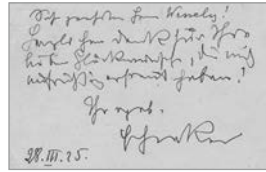 Sehr geehrter Herr Winely!
Herzlichen Dank für Ihre
lieben Glückwünsche, die mich
aufrichtig erfreut haben!
Ihr ergeb.
Schenker
28. III. 25.